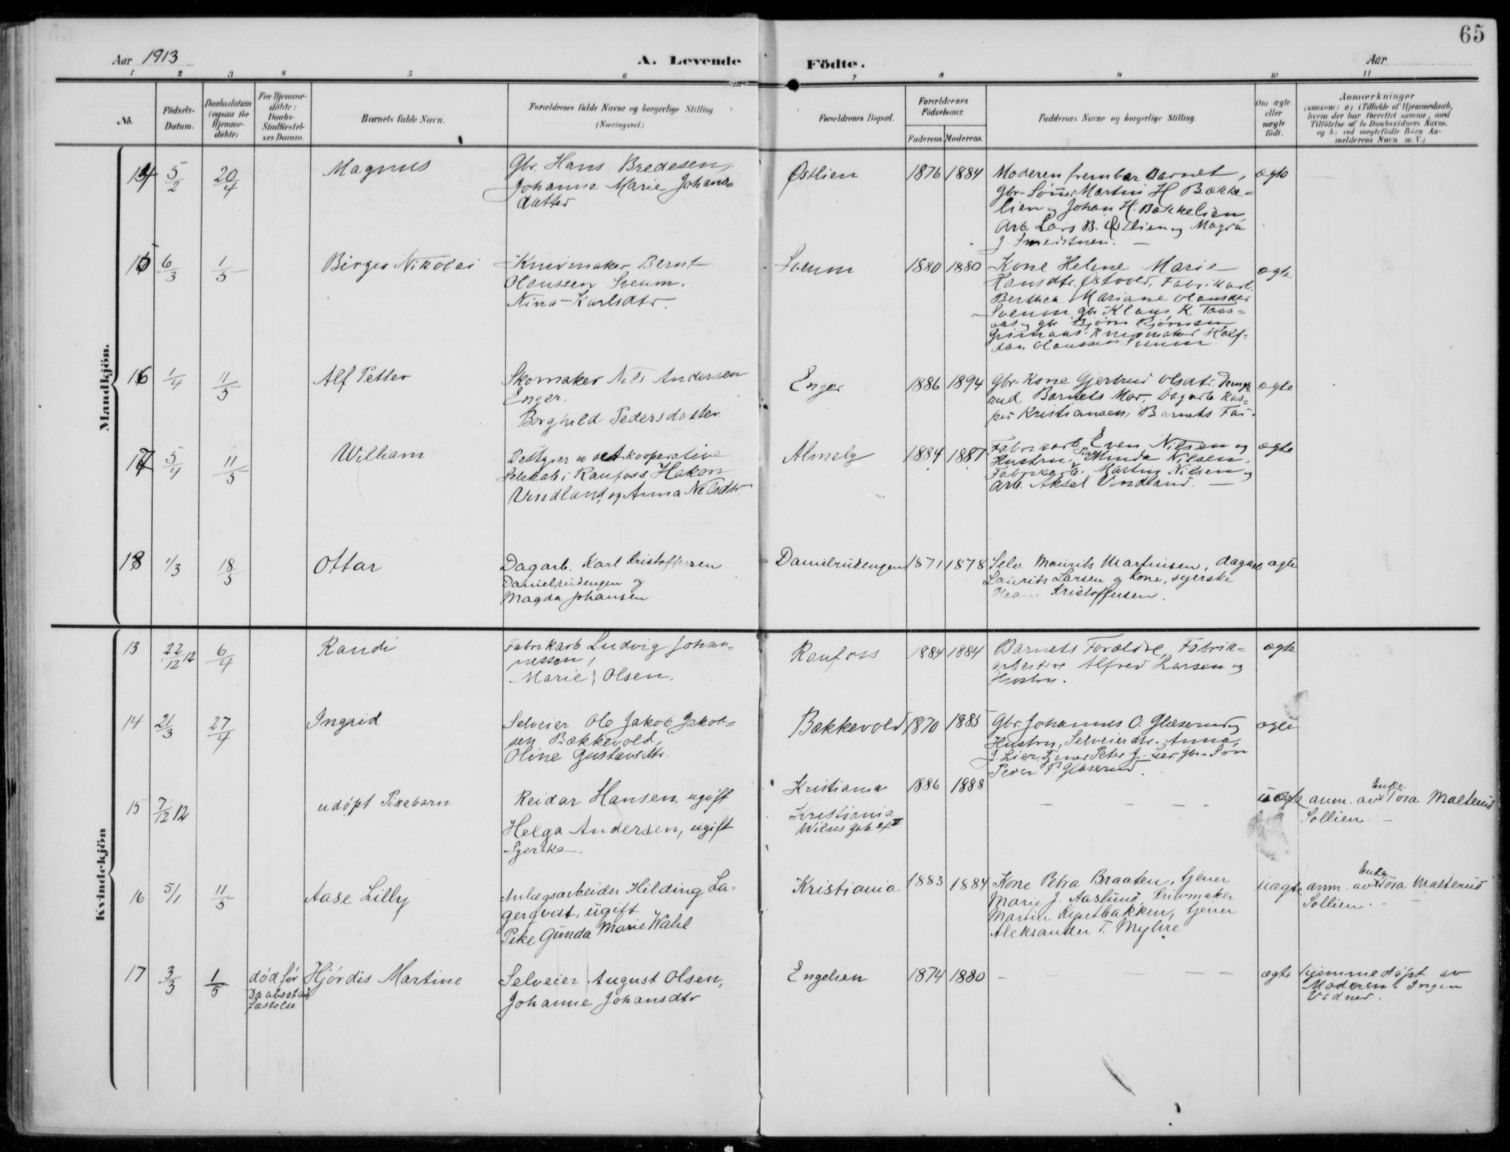 65
Aar 1913
A. Levende Födte.
Aar
1 2 3 4 5 6 7 8 9 10 11
No.
Födsels-Datum.
Daabsdatum (ogsaa for Hjemme-döbte)
For Hjemme-döbte: Daabs-Stadfæstel-ses Datum.
Barnets fulde Navn.
Forældrenes fulde Navne og borgerlige Stilling (Næringsvei.)
Forældrenes Bopæl.
Forældrenes Födselsaar.
Faderens. Moderens.
Faddernes Navne og borgerlige Stilling.
Om ægte eller uægte födt.
Anmærkninger
Mandkjön.
14 5/2 20/4 Magnus
Gbr. Hans Bredesen,
Johanne Marie Johans-
datter
Østlien 1876 1884
Moderen frembar Barnet,
Gbr. Søn Martin H Bække-
lien og Johan H. Bækkelien,
Arb. Lars B. Østlien og Magda
J
ægte
15 6/3 1/5 Birger Nikolai
Knivmaker Bernt
Olaussen Sveum.
Nina Karlsdtr.
Sveum 1880 1880
Kone Helene Marie
Hansdtr. Østvold, Fabrikarb.
Berthea Mariane Olausdtr
Sveum, gbr Klaus K.
gbr Bjørn Bjørnsen
knivmaker Half-
dan Olaussen Sveum
ægte
16 1/4 11/5 Alf Petter
Skomaker Nils Andersen
Enger.
Borghild Pedersdatter
Enger 1886 1894
Gbr. Kone Gjertrud Olsdt.
Barnets Mor, Dagarb. Kas-
per Kristiansen, Barnets Far.
ægte
17 5/4 11/5 Wilham
Bestyrer av det kooperative
Selskab i Raufoss Hakon
Vindland og Anna Nilsdtr
Almely 1884 1887
Fabrikarb. Even Nilsen og
Hustru, Pike Gunda Nilsen,
Fabrikarb. Martin Nilsen og
Arb. Aksel Vindland.
ægte
18 1/3 18/5 Ottar
Dagarb. Karl Kristoffersen
Danielrudengen og
Magda Johansen
Danielrudengen 1871 1878
Selv. Mauritz Martinsen, dagarb
Laurits Larsen og Kone, syerske
Kristoffersen.
ægte
Kvindekjön
13 22/12 12 6/4 Randi
Fabrikarb Ludvig Johan-
nessen,
Marie Olsen.
Raufoss 1884 1884
Barnets Forældre, Fabrik-
arbeider Alfred Larsen og
Hustru.
ægte
14 21/3 27/4 Ingrid
Selveier Ole Jakob Jakob-
sen Bækkevold,
Oline Gustavsdtr.
Bækkevold 1870 1885
Gbr. Johannes O. Glæserud og
Hustru, Selveierdtr. Anna
J Lier, Tjener Peter J. Lier, Gbr. Søn
Peder P. Glæserud.
ægte
15 7/12 12 udøpt Pikebarn
Reidar Hansen, ugift
Helga Andersen, ugift
Syerske
Kristiania
Kristiania
Wilses gate
1886 1888
uægte
anm. av Enke Tora Mathea
Sollien.
16 5/1 11/5 Aase Lilly
Anlægsarbeider Hilding La-
gerqvist, ugift
Pike Gunda Marie Wahl
Kristiania 1883 1884
Kone Petra Braaten, tjener
Marie J. Aaslund, knivmaker
Martin tjener
Aleksander T. Myhre
uægte
anm. av Enke Tora Mathea
Sollien.
17 3/3 1/5
død før
Daabsstad-
fæstelse
Hjördis Martine
Selveier August Olsen,
Johanne Johansdtr
Engelien 1874 1880
ægte
hjemmedøpt av
Moderen. Ingen
Vidner.